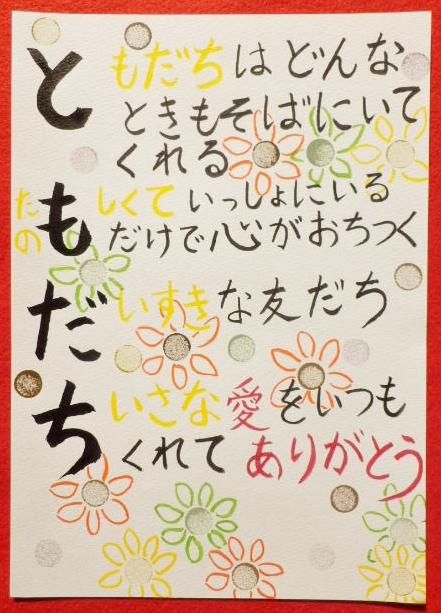 ともだちはどんな
ときもそばにいて
くれる
たのもしくて いっしょにいる
だけで心がおちつく
だいすきな友だち
ちいさな愛をいつも
くれて ありがとう